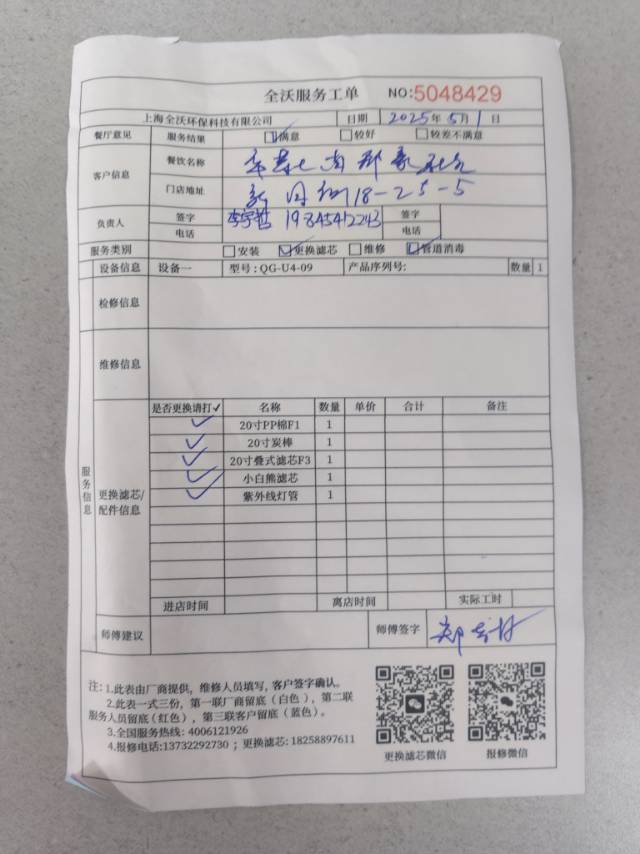 全沃服务工单 NO:5048429
上海全沃环保科技有限公司 日期 2025年5月1日
餐厅意见 服务结果 ☑满意 □较好 □较差不满意
客户信息 餐饮名称
门店地址 18-25-5
负责人 签字 李宇哲 19845412243 签字
电话 电话
服务类别 □安装 ☑更换滤芯 □维修 ☑管道消毒
设备信息 设备一 型号:QG-U4-09 产品序列号: 数量 1
检修信息
维修信息
服务信息
更换滤芯/配件信息
是否更换请打✓ 名称 数量 单价 合计 备注
✓ 20寸PP棉F1 1
✓ 20寸炭棒 1
✓ 20寸叠式滤芯F3 1
✓ 小白熊滤芯 1
✓ 紫外线灯管 1
进店时间 离店时间 实际工时
师傅建议 师傅签字
注:1.此表由厂商提供,维修人员填写,客户签字确认。
2.此表一式三份,第一联厂商留底(白色),第二联
服务人员留底(红色),第三联客户留底(蓝色)。
3.全国服务热线:4006121926
4.报修电话:13732292730;更换滤芯:18258897611
更换滤芯微信 报修微信